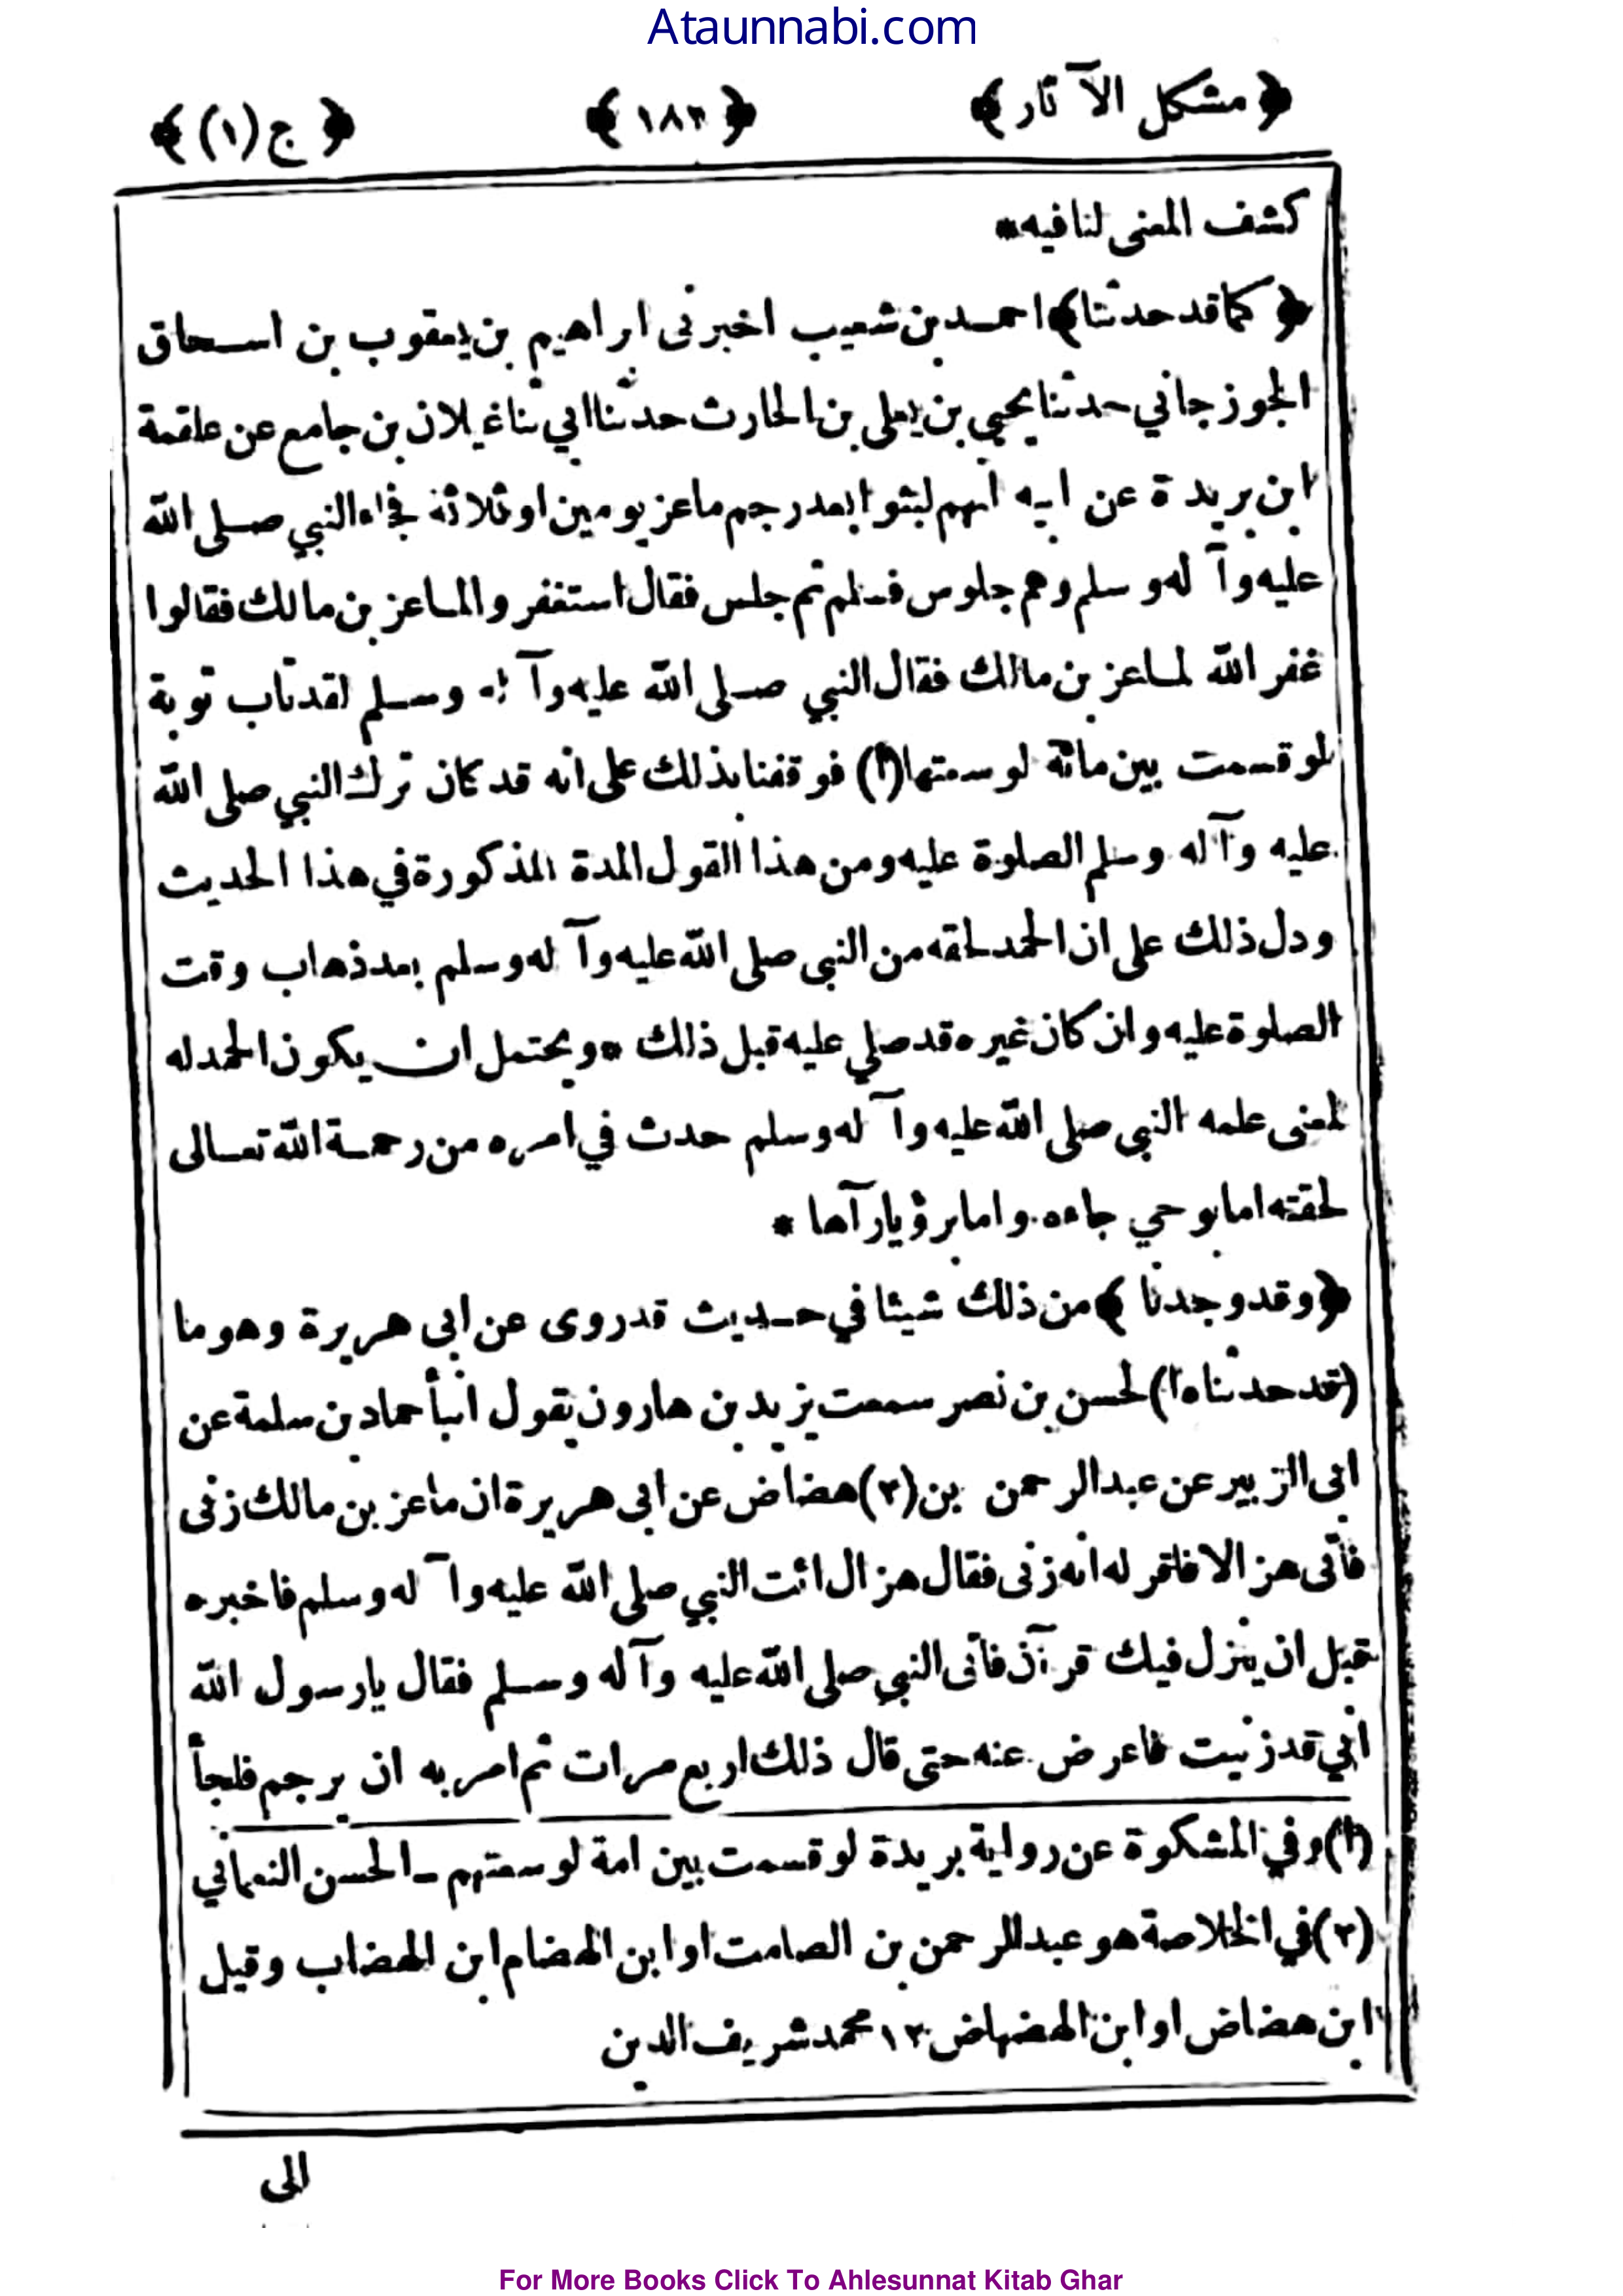 Ataunnabi.com
﴿مشكل الآثار﴾ ﴿١٨٢﴾ ﴿ج(١)﴾
كشف المعنى لنا فيه*
﴿كما قد حدثنا﴾ احمد بن شعيب اخبرنى ابراهيم بن يعقوب بن اسحاق
الجوزجاني حدثنا يحيى بن يعلى بن الحارث حدثنا ابي ثنا غيلان بن جامع عن علقمة
ابن بريدة عن ابيه انهم لبثوا بعد رجم ماعز يومين او ثلاثة فجاء النبي صلى الله
عليه وآله وسلم وهم جلوس فسلم ثم جلس فقال استغفروا لماعز بن مالك فقالوا
غفر الله لماعز بن مالك فقال النبي صلى الله عليه وآله وسلم لقد تاب توبة
لو قسمت بين مائة لوسعتها(١) فوقفنا بذلك على انه قد كان ترك النبي صلى الله
عليه وآله وسلم الصلوة عليه ومن هذا القول المدة المذكورة في هذا الحديث
ودل ذلك على ان الحمد لحقه من النبي صلى الله عليه وآله وسلم بعد ذهاب وقت
الصلوة عليه وان كان غيره قد صلي عليه قبل ذلك * ويحتمل ان يكون الحمد له
لمعنى علمه النبي صلى الله عليه وآله وسلم حدث في امره من رحمة الله تعالى
لحقته اما بوحي جاءه واما برؤيا رآها *
﴿وقد وجدنا﴾ من ذلك شيئا في حديث قد روى عن ابى هريرة وهو ما
(قد حدثناه ا) لحسن بن نصر سمعت يزيد بن هارون يقول انبأ حماد بن سلمة عن
ابى الزبير عن عبد الرحمن بن (٢) هضاض عن ابى هريرة ان ماعز بن مالك زنى
فأتى هزالا فاقر له انه زنى فقال هزال ائت النبي صلى الله عليه وآله وسلم فاخبره
قبل ان ينزل فيك قرآن فأتى النبي صلى الله عليه وآله وسلم فقال يا رسول الله
اني قد زنيت فاعرض عنه حتى قال ذلك اربع مرات ثم امر به ان يرجم فلجأ
(١) وفي المشكوة عن رواية بريدة لو قسمت بين امة لوسعتهم ـ الحسن النعماني
(٢) في الخلاصة هو عبد الرحمن بن الصامت او ابن الهضام ابن الهضاب وقيل
ابن هضاض او ابن الهضهاض ١٢ محمد شريف الدين
الى
For More Books Click To Ahlesunnat Kitab Ghar